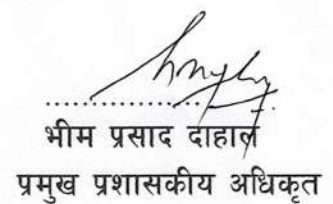 भीम प्रसाद दाहाल
प्रमुख प्रशासकीय अधिकृत